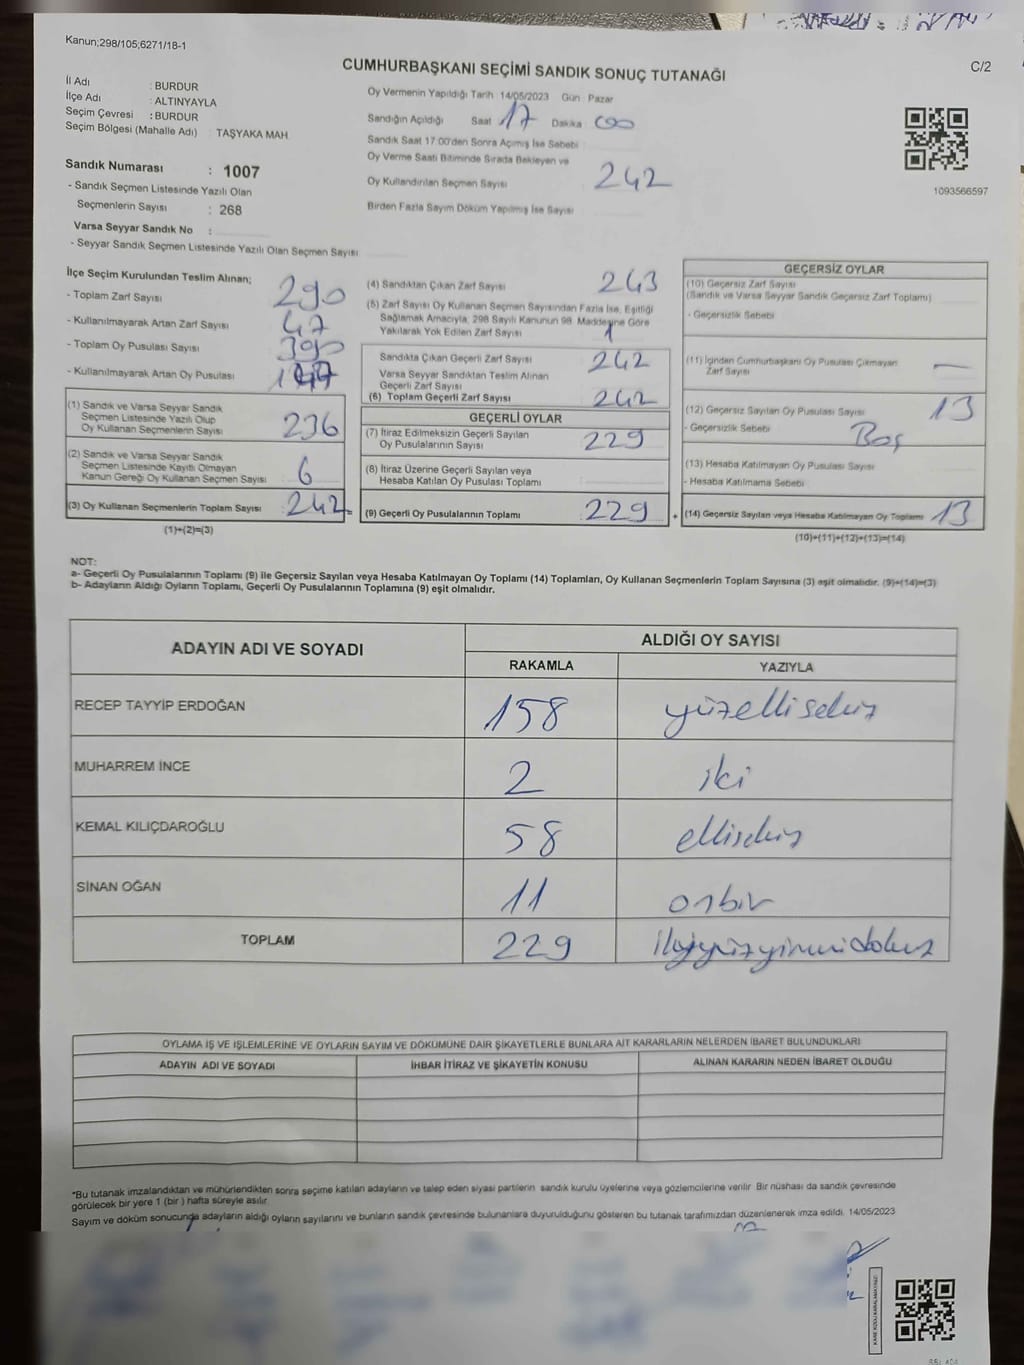 Kanun;298/105;6271/18-1
C/2
CUMHURBAŞKANI SEÇİMİ SANDIK SONUÇ TUTANAĞI
İl Adı : BURDUR
İlçe Adı : ALTINYAYLA
Seçim Çevresi : BURDUR
Seçim Bölgesi (Mahalle Adı) : TAŞYAKA MAH.
Sandık Numarası : 1007
- Sandık Seçmen Listesinde Yazılı Olan
Seçmenlerin Sayısı : 268
Varsa Seyyar Sandık No :
- Seyyar Sandık Seçmen Listesinde Yazılı Olan Seçmen Sayısı
Oy Vermenin Yapıldığı Tarih 14/05/2023 Gün Pazar
Sandığın Açıldığı Saat 17 Dakika 00
Sandık Saat 17.00'den Sonra Açımış İse Sebebi
Oy Verme Saati Bitiminde Sırada Bekleyen ve
Oy Kullandırılan Seçmen Sayısı 242
Birden Fazla Sayım Döküm Yapılmış İse Sayısı
1093566597
İlçe Seçim Kurulundan Teslim Alınan;
- Toplam Zarf Sayısı 290
- Kullanılmayarak Artan Zarf Sayısı 47
- Toplam Oy Pusulası Sayısı 390
- Kullanılmayarak Artan Oy Pusulası
(1) Sandık ve Varsa Seyyar Sandık
Seçmen Listesinde Yazılı Olup
Oy Kullanan Seçmenlerin Sayısı 236
(2) Sandık ve Varsa Seyyar Sandık
Seçmen Listesinde Kayıtlı Olmayan
Kanun Gereği Oy Kullanan Seçmen Sayısı 6
(3) Oy Kullanan Seçmenlerin Toplam Sayısı 242 =
(1)+(2)=(3)
(4) Sandıktan Çıkan Zarf Sayısı 243
(5) Zarf Sayısı Oy Kullanan Seçmen Sayısından Fazla İse, Eşitliği
Sağlamak Amacıyla, 298 Sayılı Kanunun 98. Maddesine Göre
Yakılarak Yok Edilen Zarf Sayısı 1
Sandıkta Çıkan Geçerli Zarf Sayısı 242
Varsa Seyyar Sandıktan Teslim Alınan
Geçerli Zarf Sayısı
(6) Toplam Geçerli Zarf Sayısı 242
GEÇERLİ OYLAR
(7) İtiraz Edilmeksizin Geçerli Sayılan
Oy Pusulalarının Sayısı 229
(8) İtiraz Üzerine Geçerli Sayılan veya
Hesaba Katılan Oy Pusulası Toplamı
(9) Geçerli Oy Pusulalarının Toplamı 229 +
GEÇERSİZ OYLAR
(10) Geçersiz Zarf Sayısı
(Sandık ve Varsa Seyyar Sandık Geçersiz Zarf Toplamı)
- Geçersizlik Sebebi
(11) İçinden Cumhurbaşkanı Oy Pusulası Çıkmayan
Zarf Sayısı —
(12) Geçersiz Sayılan Oy Pusulası Sayısı 13
- Geçersizlik Sebebi Boş
(13) Hesaba Katılmayan Oy Pusulası Sayısı
- Hesaba Katılmama Sebebi
(14) Geçersiz Sayılan veya Hesaba Katılmayan Oy Toplamı 13
(10)+(11)+(12)+(13)=(14)
NOT:
a- Geçerli Oy Pusulalarının Toplamı (9) ile Geçersiz Sayılan veya Hesaba Katılmayan Oy Toplamı (14) Toplamları, Oy Kullanan Seçmenlerin Toplam Sayısına (3) eşit olmalıdır. (9)+(14)=(3)
b- Adayların Aldığı Oyların Toplamı, Geçerli Oy Pusulalarının Toplamına (9) eşit olmalıdır.
ADAYIN ADI VE SOYADI
ALDIĞI OY SAYISI
RAKAMLA YAZIYLA
RECEP TAYYİP ERDOĞAN 158 yüzellisekiz
MUHARREM İNCE 2 iki
KEMAL KILIÇDAROĞLU 58 ellisekiz
SİNAN OĞAN 11 onbir
TOPLAM 229 ikiyüzyirmidokuz
OYLAMA İŞ VE İŞLEMLERİNE VE OYLARIN SAYIM VE DÖKÜMÜNE DAİR ŞİKAYETLERLE BUNLARA AİT KARARLARIN NELERDEN İBARET BULUNDUKLARI
ADAYIN ADI VE SOYADI İHBAR İTİRAZ VE ŞİKAYETİN KONUSU ALINAN KARARIN NEDEN İBARET OLDUĞU
*Bu tutanak imzalandıktan ve mühürlendikten sonra seçime katılan adayların ve talep eden siyasi partilerin sandık kurulu üyelerine veya gözlemcilerine verilir. Bir nüshası da sandık çevresinde
görülecek bir yere 1 (bir) hafta süreyle asılır.
Sayım ve döküm sonucunda adayların aldığı oyların sayılarını ve bunların sandık çevresinde bulunanlara duyurulduğunu gösteren bu tutanak tarafımızdan düzenlenerek imza edildi. 14/05/2023
KARE KODU KARALAMAYINIZ!